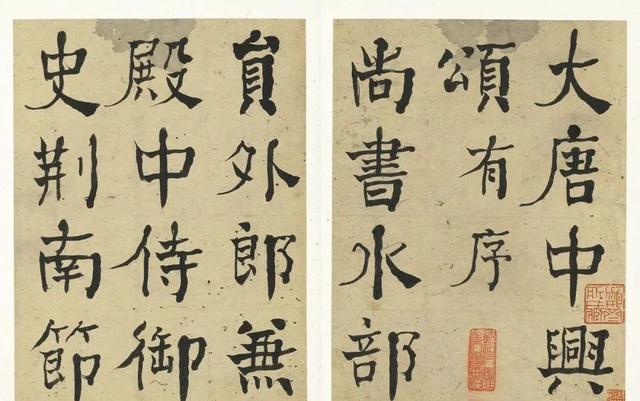 大唐中興
頌有序
尚書水部
員外郎無
殿中侍御
史荆南節